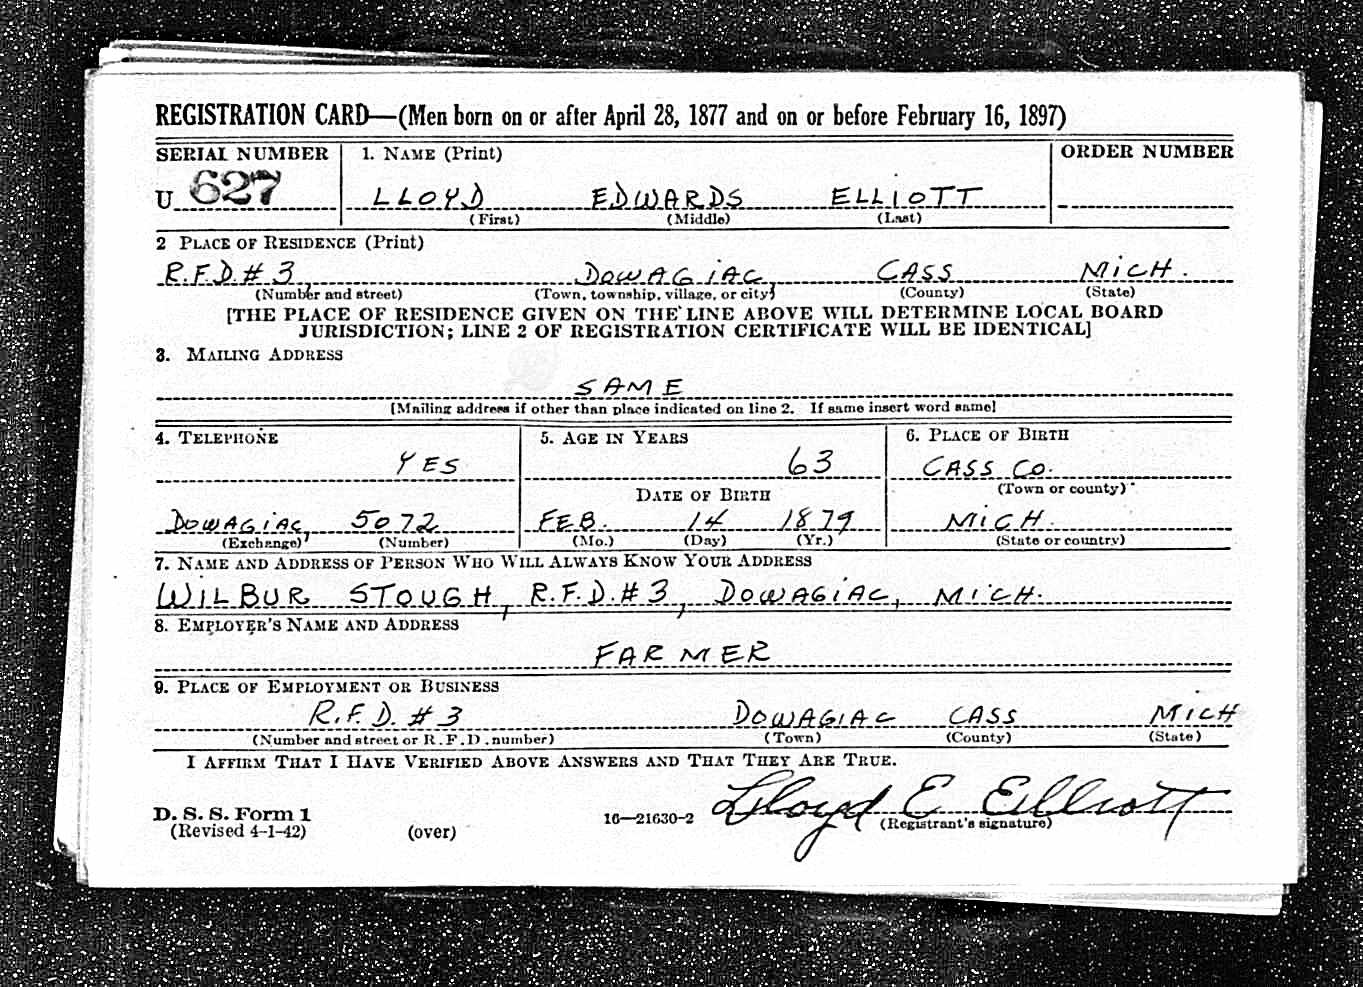 REGISTRATION CARD—(Men born on or after April 28, 1877 and on or before February 16, 1897)
SERIAL NUMBER 1. NAME (Print) ORDER NUMBER
U 627 LLOYD EDWARDS ELLIOTT
(First) (Middle) (Last)
2 PLACE OF RESIDENCE (Print)
R.F.D.# 3 DOWAGIAC CASS MICH.
(Number and street) (Town, township, village, or city) (County) (State)
[THE PLACE OF RESIDENCE GIVEN ON THE LINE ABOVE WILL DETERMINE LOCAL BOARD
JURISDICTION; LINE 2 OF REGISTRATION CERTIFICATE WILL BE IDENTICAL]
3. MAILING ADDRESS
SAME
[Mailing address if other than place indicated on line 2. If same insert word same]
4. TELEPHONE 5. AGE IN YEARS 6. PLACE OF BIRTH
YES 63 CASS CO.
DATE OF BIRTH (Town or county)
DOWAGIAC, 5072 FEB. 14 1879 MICH.
(Exchange) (Number) (Mo.) (Day) (Yr.) (State or country)
7. NAME AND ADDRESS OF PERSON WHO WILL ALWAYS KNOW YOUR ADDRESS
WILBUR STOUGH, R.F.D.# 3, DOWAGIAC, MICH.
8. EMPLOYER'S NAME AND ADDRESS
FARMER
9. PLACE OF EMPLOYMENT OR BUSINESS
R.F.D. # 3 DOWAGIAC CASS MICH
(Number and street or R.F.D. number) (Town) (County) (State)
I AFFIRM THAT I HAVE VERIFIED ABOVE ANSWERS AND THAT THEY ARE TRUE.
Lloyd E Elliott
D. S. S. Form 1 16—21630-2 (Registrant's signature)
(Revised 4-1-42) (over)